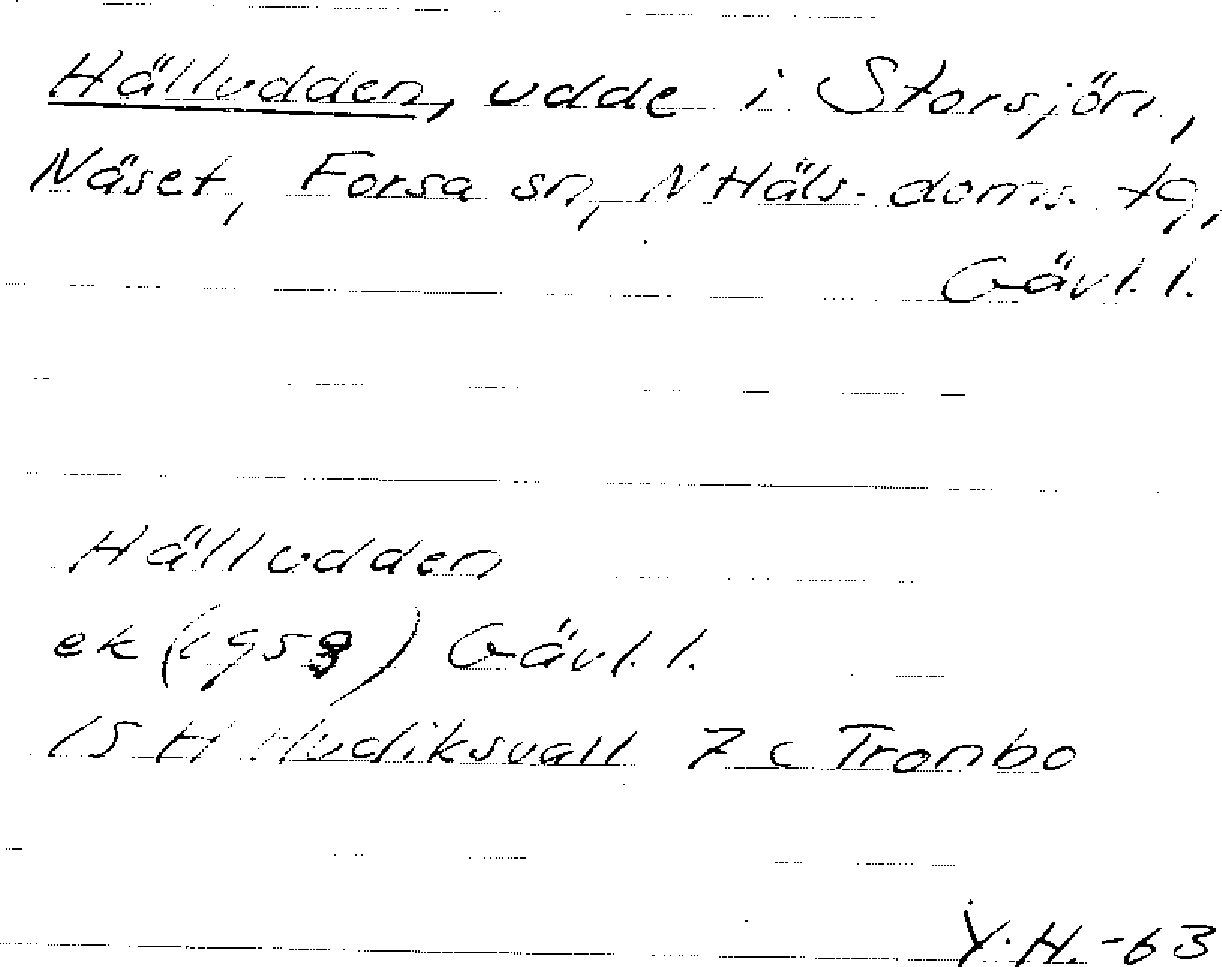 Hälludden, udde i Storsjön,
Näset, Forsa sn, N Häls. doms. tg,
Gävl. l.
Hälludden
ek (1958) Gävl. l.
15 H Hudiksvall 7 c Trombo
Y.H. -63